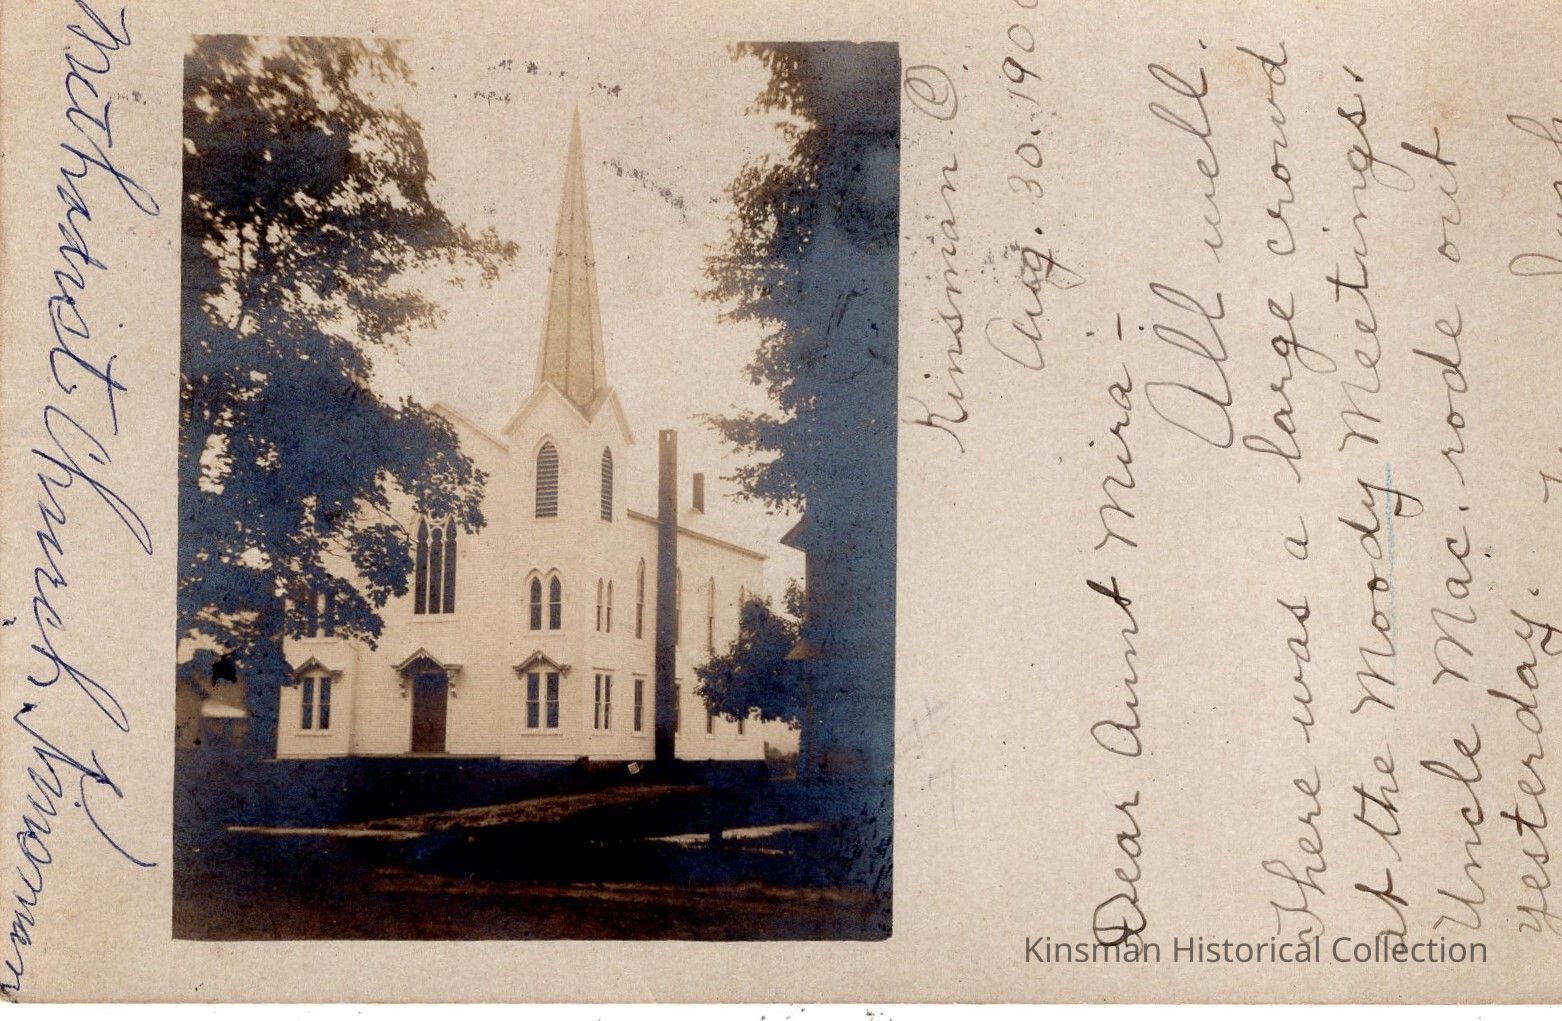 Methodist Church
Kinsman O.
Aug. 30. 190
Dear Aunt Mira –
All well.
There was a large crowd
at the Moody Meetings.
Uncle Mac. rode out
yesterday.
Kinsman Historical Collection